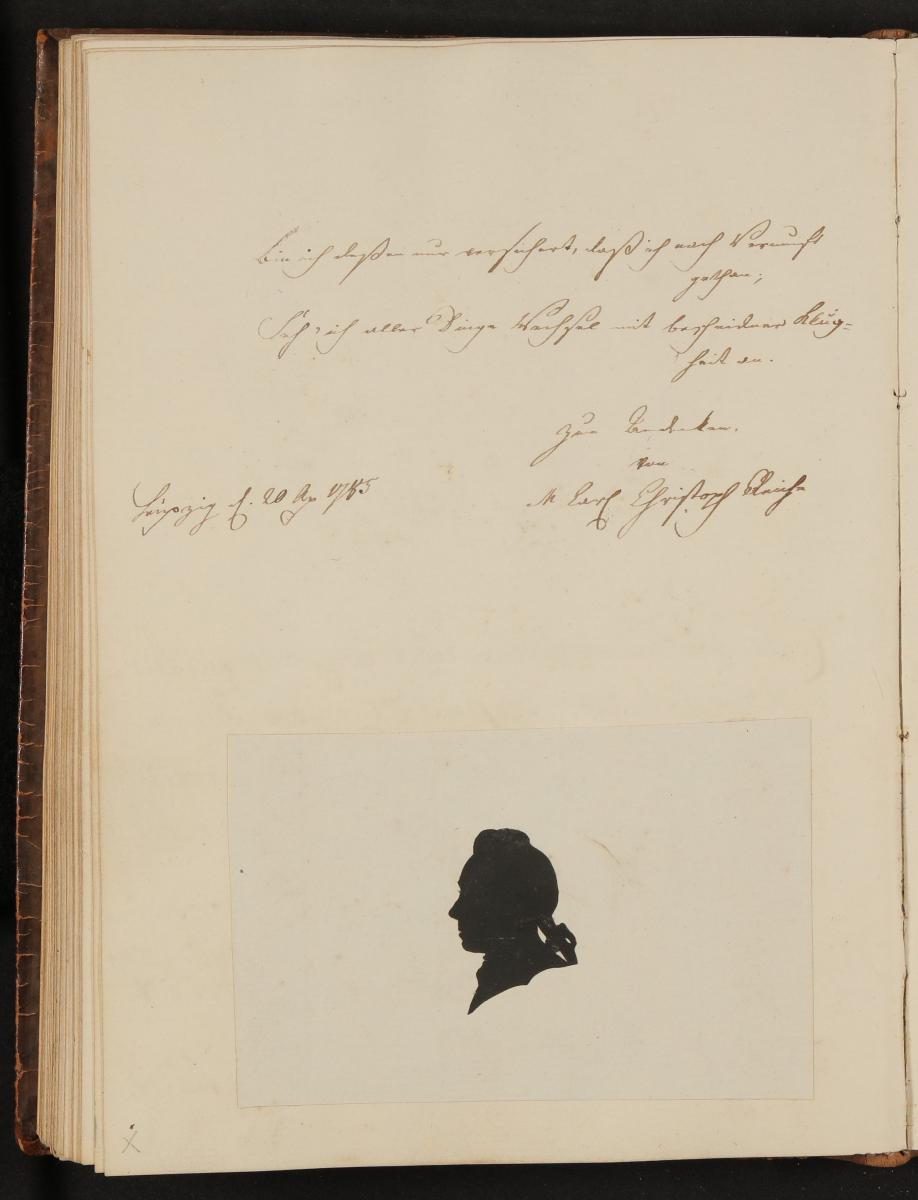 Bin ich deßen nur versichert, daß ich nach Vernunft
gethan;
Seh' ich aller Dinge Wechsel mit bescheidner Klug-
heit an.
Zum Andenken.
von
M Carl Christoph Reiche
Leipzig d. 20 Ap 1785